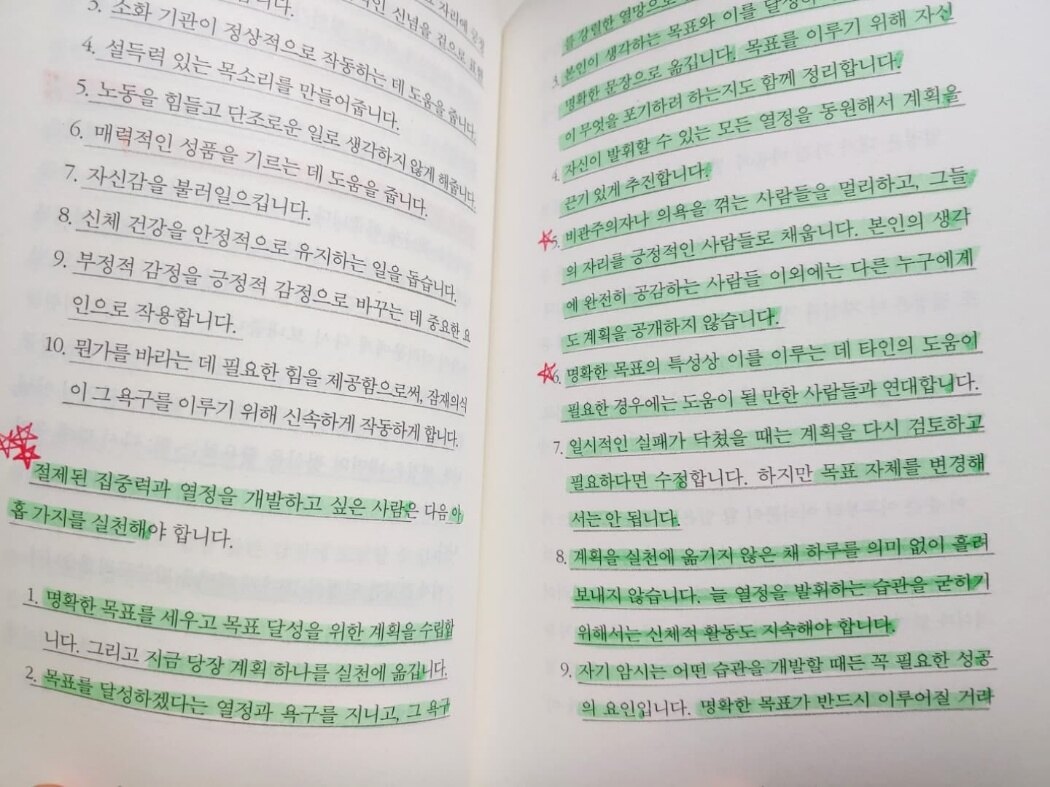 적인 신념을 겉으로 표현
3. 소화 기관이 정상적으로 작동하는 데 도움을 줍니다.
4. 설득력 있는 목소리를 만들어줍니다.
5. 노동을 힘들고 단조로운 일로 생각하지 않게 해줍니다.
6. 매력적인 성품을 기르는 데 도움을 줍니다.
7. 자신감을 불러일으킵니다.
8. 신체 건강을 안정적으로 유지하는 일을 돕습니다.
9. 부정적 감정을 긍정적 감정으로 바꾸는 데 중요한 요
인으로 작용합니다.
10. 뭔가를 바라는 데 필요한 힘을 제공함으로써, 잠재의식
이 그 욕구를 이루기 위해 신속하게 작동하게 합니다.
절제된 집중력과 열정을 개발하고 싶은 사람은 다음 아
홉 가지를 실천해야 합니다.
1. 명확한 목표를 세우고 목표 달성을 위한 계획을 수립합
니다. 그리고 지금 당장 계획 하나를 실천에 옮깁니다.
2. 목표를 달성하겠다는 열정과 욕구를 지니고, 그 욕구
를 강렬한 열망으로
3. 본인이 생각하는 목표와 이를 달성하
명확한 문장으로 옮깁니다. 목표를 이루기 위해 자신
이 무엇을 포기하려 하는지도 함께 정리합니다.
4. 자신이 발휘할 수 있는 모든 열정을 동원해서 계획을
끈기 있게 추진합니다.
5. 비관주의자나 의욕을 꺾는 사람들을 멀리하고, 그들
의 자리를 긍정적인 사람들로 채웁니다. 본인의 생각
에 완전히 공감하는 사람들 이외에는 다른 누구에게
도 계획을 공개하지 않습니다.
6. 명확한 목표의 특성상 이를 이루는 데 타인의 도움이
필요한 경우에는 도움이 될 만한 사람들과 연대합니다.
7. 일시적인 실패가 닥쳤을 때는 계획을 다시 검토하고
필요하다면 수정합니다. 하지만 목표 자체를 변경해
서는 안 됩니다.
8. 계획을 실천에 옮기지 않은 채 하루를 의미 없이 흘려
보내지 않습니다. 늘 열정을 발휘하는 습관을 굳히기
위해서는 신체적 활동도 지속해야 합니다.
9. 자기 암시는 어떤 습관을 개발할 때든 꼭 필요한 성공
의 요인입니다. 명확한 목표가 반드시 이루어질 거라